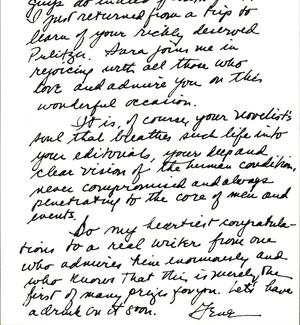 I just returned from a trip to
learn of your richly deserved
Pulitzer. Sara joins me in
rejoicing with all those who
love and admire you on this
wonderful occasion.
It is, of course, your novelist's
soul that breathes such life into
your editorials, your deep and
clear vision of the human condition,
never compromised and always
penetrating to the core of men and
events.
So my heartiest congratula-
tions to a real writer from one
who admires him enormously and
who knows that this is merely the
first of many prizes for you. Let's have
a drink on it soon.